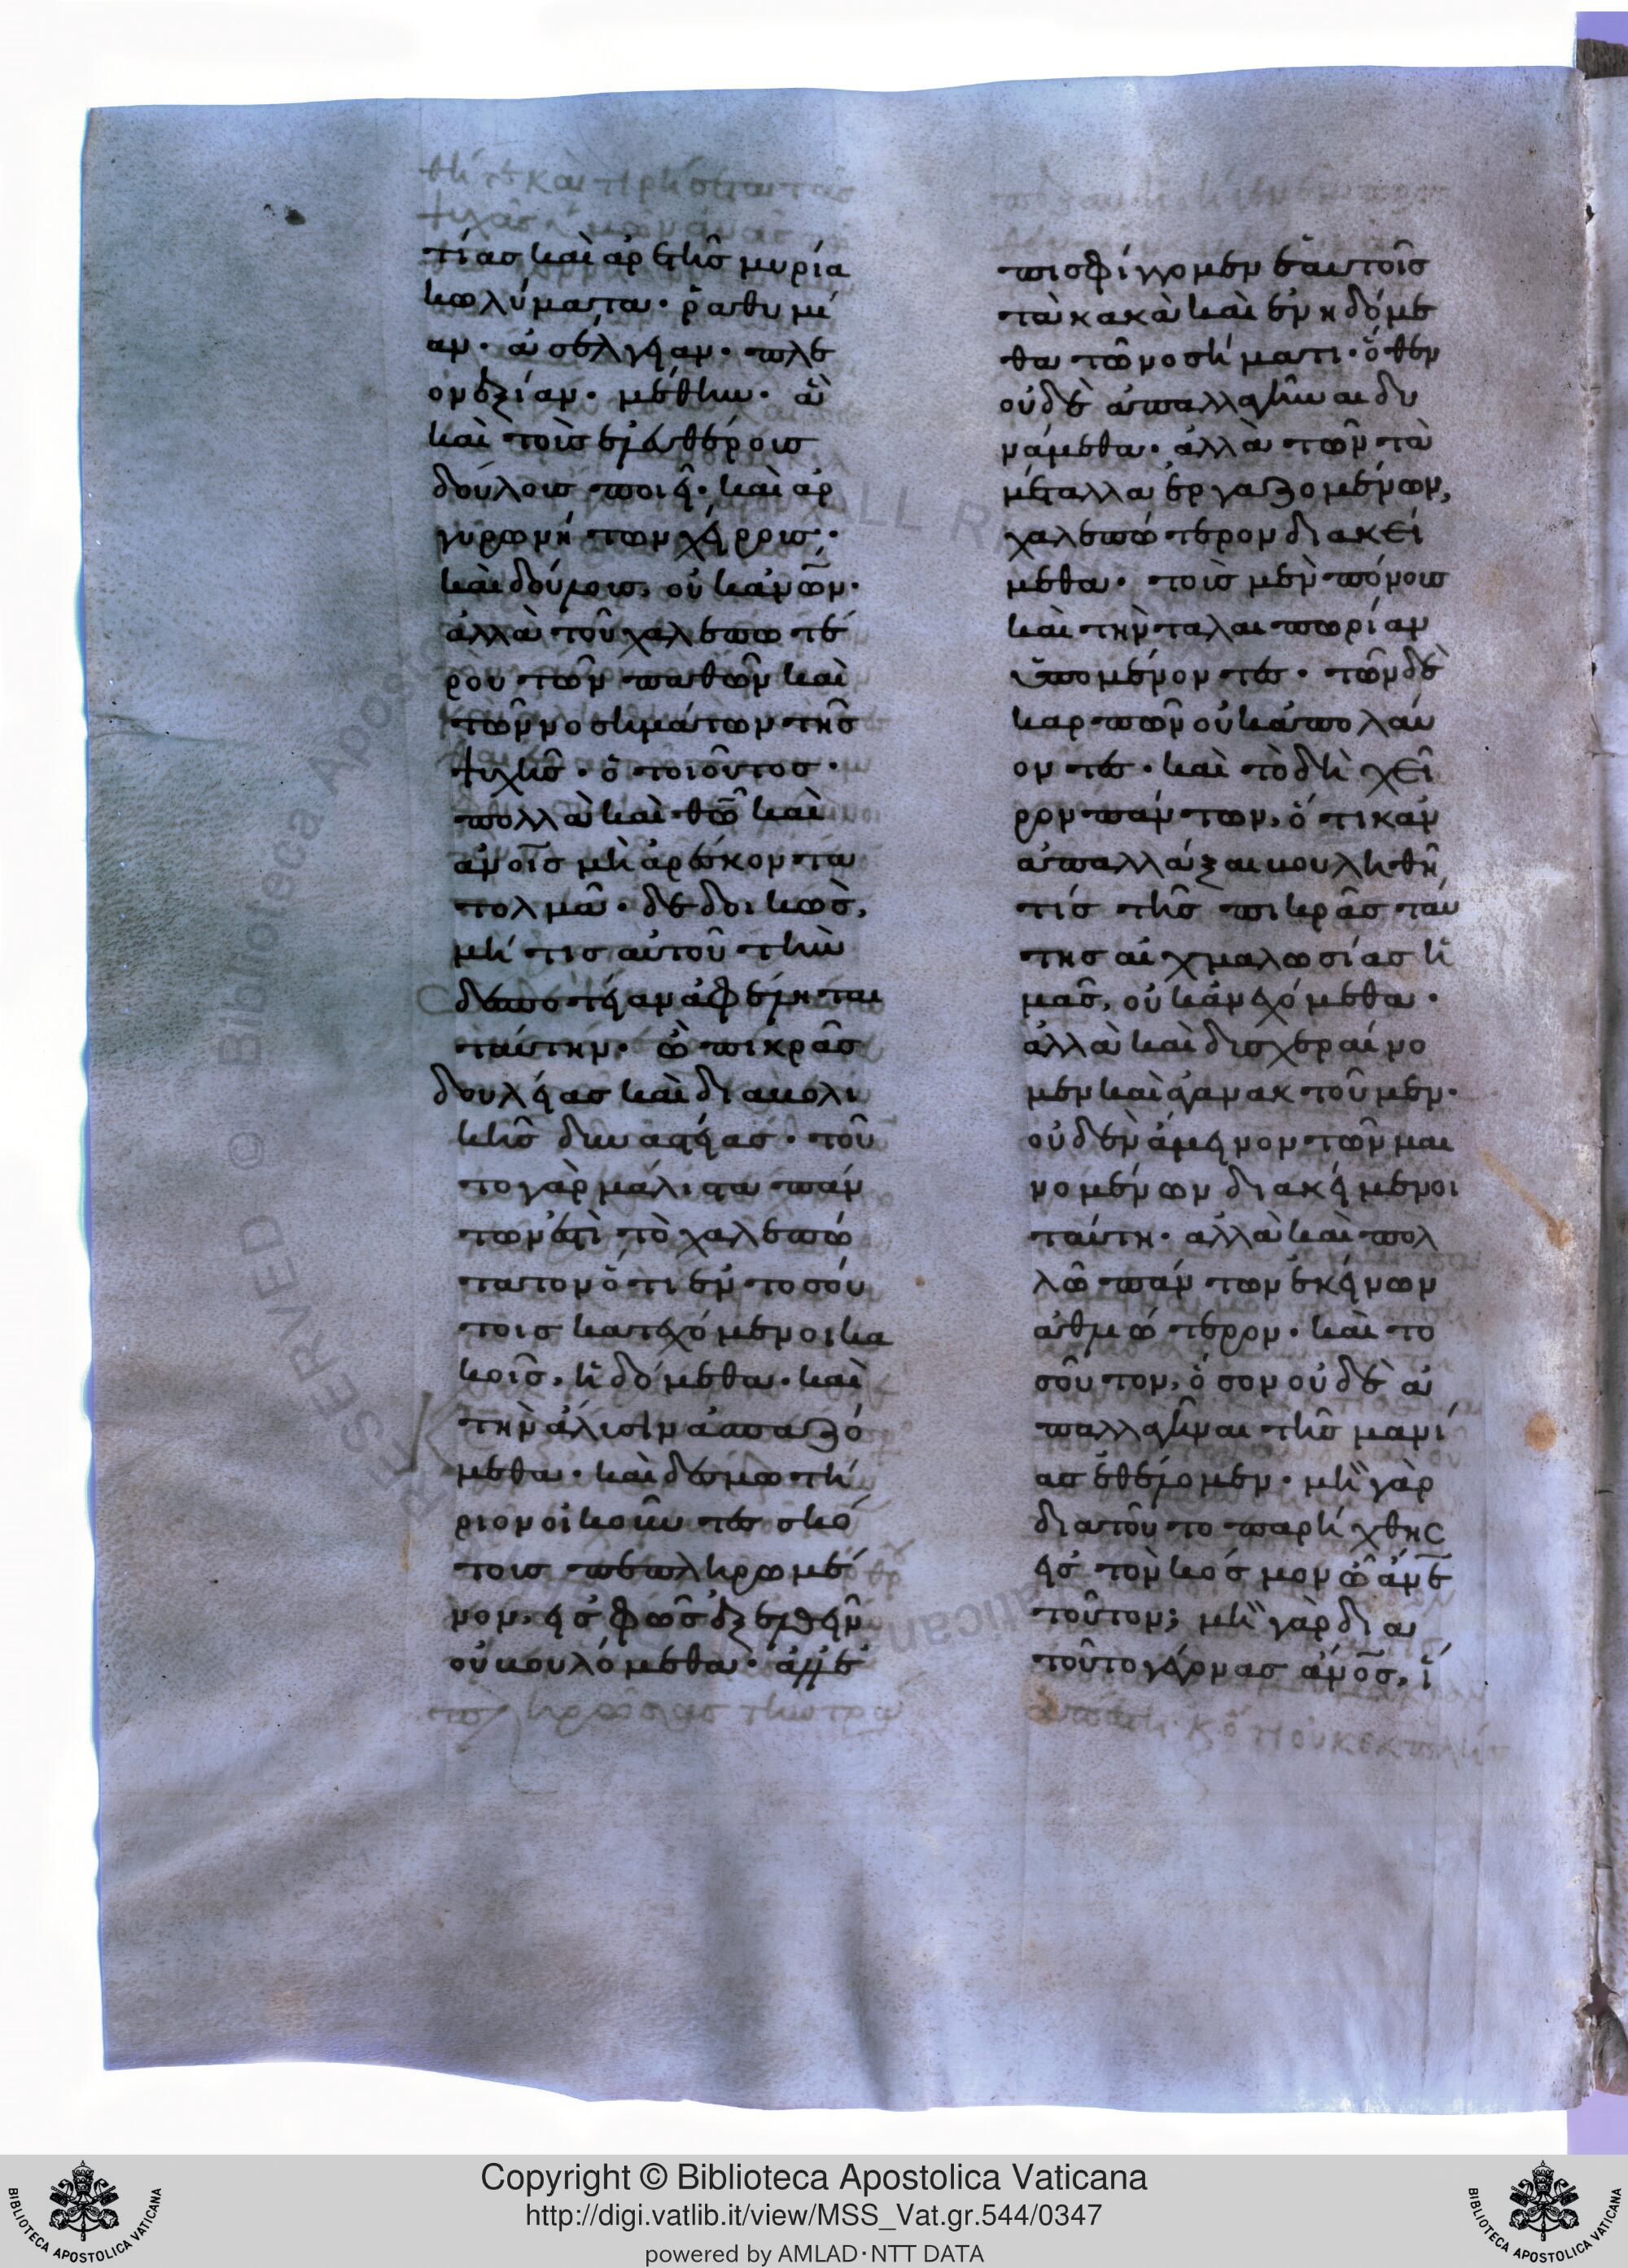 τίας καὶ ἀρετῆς μυρία
κωλύματα· ῥαθυμί
αν· ἀσέλγειαν· πλε
ονεξίαν· μέθην· ἃ
καὶ τοὺς ἐλευθέρους
δούλους ποιεῖ· καὶ ἀρ
γυρωνήτων χείρους·
καὶ δούλους, οὐκ ἀνῶν·
ἀλλὰ τοῦ χαλεπωτέ
ρου τῶν παθῶν καὶ
τῶν νοσημάτων τῆς
ψυχῆς· ὁ τοιοῦτος·
πολλὰ καὶ θῶ καὶ
ἀνοῖς μὴ ἀρέσκοντα
τολμᾶ· δεδοικὼς,
μή τις αὐτοῦ τὴν
δεσποτείαν ἀφέληται
ταύτην· ὢ πικρᾶς
δουλείας καὶ διαβολι
κῆς δυναστείας· τοῦ
το γὰρ μάλιστα πάν
των ἐστὶ τὸ χαλεπώ
τατον ὅτι ἐν τοσού
τοις κατεχόμενοι κα
κοῖς, ἡδόμεθα· καὶ
τὴν ἅλυσιν ἀσπαζό
μεθα· καὶ δεσμωτή
ριον οἰκοῦντες σκό
τους πεπληρωμέ
νον, εἰς φῶς ἐξελθεῖν
οὐ βουλόμεθα· ἀλλ' ἐ
πισφίγγομεν ἑαυτοῖς
τὰ κακὰ καὶ ἐνηδόμε
θα τῶ νοσήματι· ὅθεν
οὐδὲ ἀπαλλαγῆναι δυ
νάμεθα· ἀλλὰ τῶν τὰ
μέταλλα ἐργαζομένων,
χαλεπώτερον διακεί
μεθα· τοὺς μὲν πόνους
καὶ τὴν ταλαιπωρίαν
ὑπομένοντες· τῶν δὲ
καρπῶν οὐκ ἀπολαύ
οντες· καὶ τὸ δὴ χεῖ
ρον πάντων, ὅτι κἂν
ἀπαλλάξαι βουληθῆ
τίς τῆς πικρᾶς ταύ
της αἰχμαλωσίας ἡ
μᾶς, οὐκ ἀνεχόμεθα·
ἀλλὰ καὶ δυσχεραίνο
μεν καὶ ἀγανακτοῦμεν·
οὐδὲν ἄμεινον τῶν μαι
νομένων διακείμενοι
ταύτη· ἀλλὰ καὶ πολ
λῶ πάντων ἐκείνων
ἀθλιώτερον· καὶ το
σοῦτον, ὅσον οὐδὲ ἀ
παλλαγῆναι τῆς μανί
ας ἐθέλομεν· μὴ γὰρ
διὰ τοῦτο παρήχθης
εἰς τὸν κόσμον ὦ ἄνε
τοῦτον; μὴ γὰρ δια
τοῦτο γέγονας ἀνος, ἵ